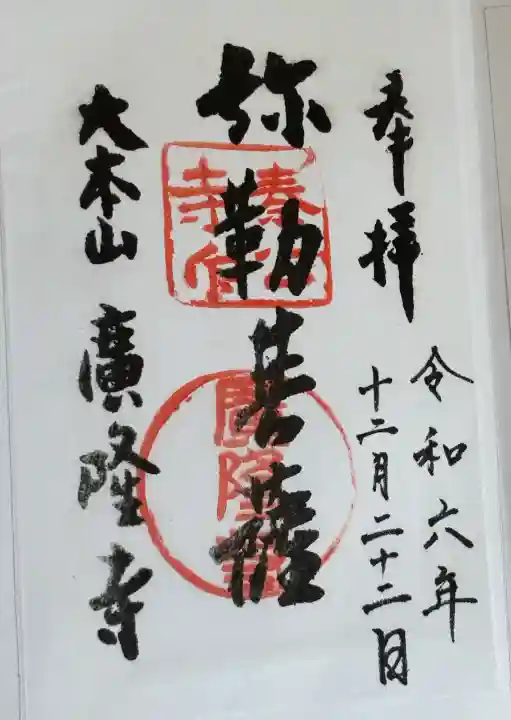 奉拝
令和六年
十二月二十二日
弥勒菩薩
大本山 廣隆寺
廣隆寺